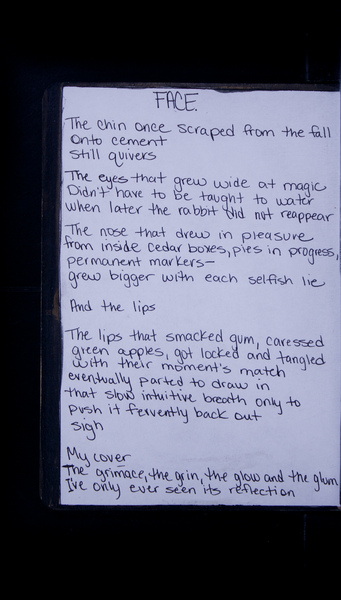 FACE.
The chin once scraped from the fall
onto cement
still quivers
The eyes that grew wide at magic
Didn't have to be taught to water
when later the rabbit did not reappear
The nose that drew in pleasure
from inside cedar boxes, pies in progress,
permanent markers—
grew bigger with each selfish lie
And the lips
The lips that smacked gum, caressed
green apples, got locked and tangled
with their moment's match
eventually parted to draw in
that slow intuitive breath only to
push it fervently back out
sigh
My cover
The grimace, the grin, the glow and the glum
I've only ever seen its reflection